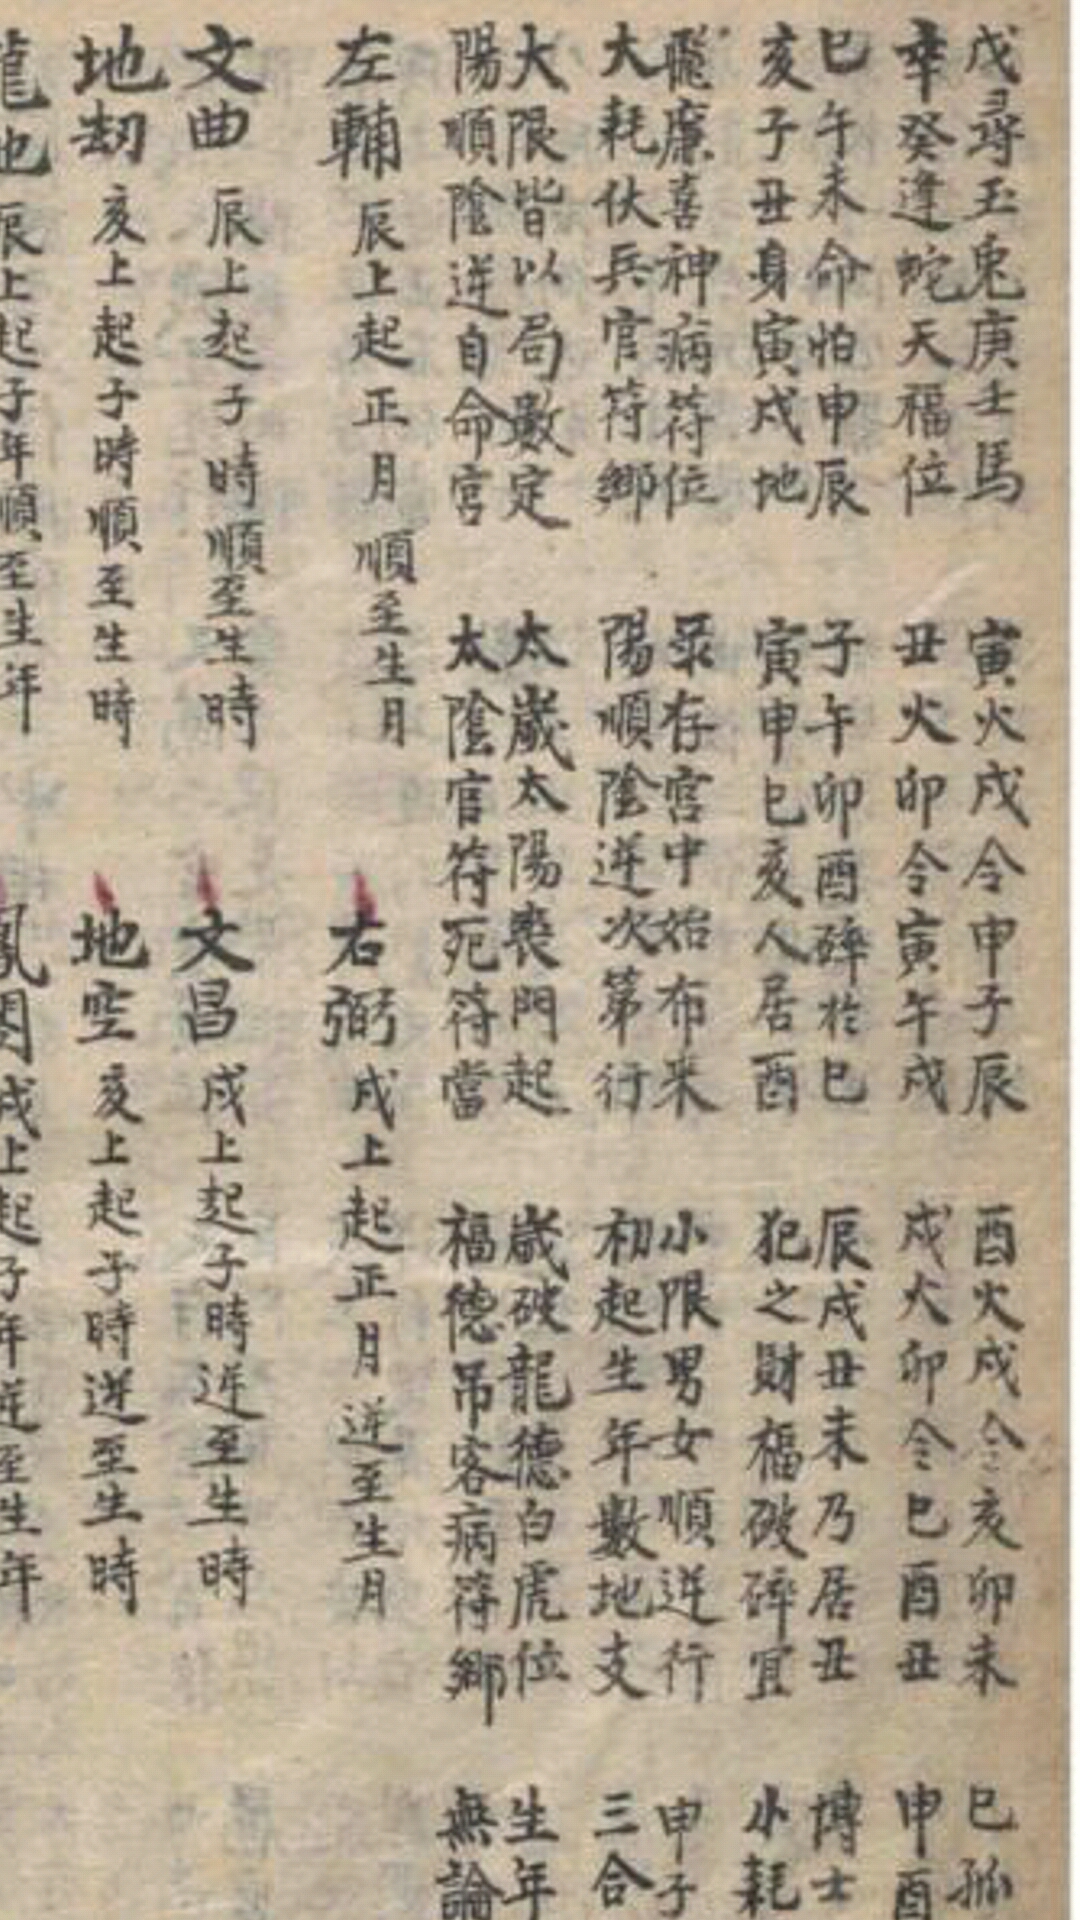 戊尋玉兔庚壬馬
辛癸逢蛇天福位
寅火戌令申子辰
丑火卯令寅午戌
酉火戌令亥卯未
戌火卯令巳酉丑
巳孤
申酉
巳午未命怕申辰
亥子丑身寅戌地
子午卯酉碎於巳
寅申巳亥人居酉
辰戌丑未乃居丑
犯之財福破碎宜
博士
小耗
飛廉喜神病符位
大耗伏兵官符鄉
彔存宮中始布来
陽順陰逆次第行
小限男女順逆行
初起生年數地支
申子
三合
大限皆以局數定
陽順陰逆自命宮
太歲太陽喪門起
太陰官符死符當
歲破龍德白虎位
福德吊客病符鄉
生年
無論
左輔 辰上起正月順至生月
右弼 戌上起正月逆至生月
文曲 辰上起子時順至生時
文昌 戌上起子時逆至生時
地刼 亥上起子時順至生時
地空 亥上起子時逆至生時
龍池 辰上起子年順至生年
鳳閣 戌上起子年逆至生年